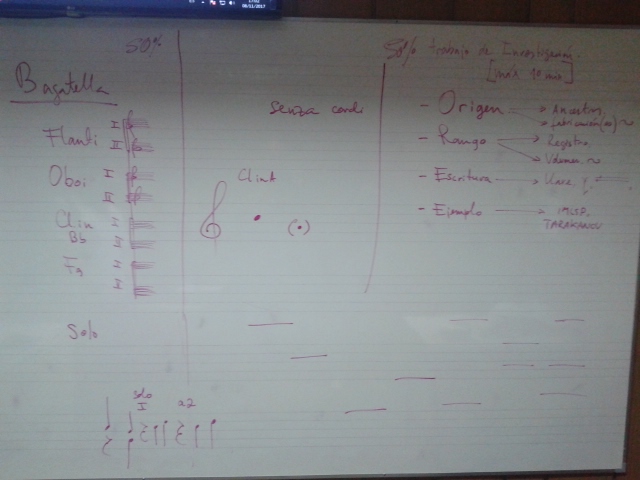 17:02
09/11/2017
50%
Bagatella
Flauti I
II
Oboi I
II
Clin I
Bb II
Fg I
I
Solo
solo
I
a2
Senza cordi
Clint
50% trabajo de Investigación
[máx 10 min]
- Origen → Ancestros
→ fabricación(es)
- Rango → Registro
→ Volumen
- Escritura → Llave y
- Ejemplo → IMLSP.
TARAKANOV